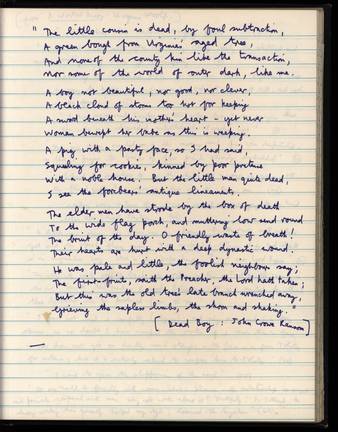 " The little cousin is dead, by foul subtraction,
A green bough from Virginia's aged tree,
And none of the county kin like the transaction,
Nor some of the world of outer dark, like me.
A boy not beautiful, nor good, nor clever,
A black cloud of storms too hot for keeping
A sword beneath his mother's heart - yet never
Woman bewept her babe as this is weeping.
A pig with a pasty face, so I had said,
Squealing for cookies, kinned by poor pretence
With a noble house. But the little man quite dead,
I see the forbears' antique lineaments.
The elder men have strode by the box of death
To the wide flag porch, and muttering low send round
The bruit of the day. O friendly waste of breath!
Their hearts are hurt with a deep dynastic wound.
He was pale and little, the foolish neighbors say;
The first-fruits, saith the Preacher, the Lord hath taken;
But this was the old tree's late branch wrenched away,
Grieving the sapless limbs, the shorn and shaking.
[ Dead Boy : John Crowe Ransom ]